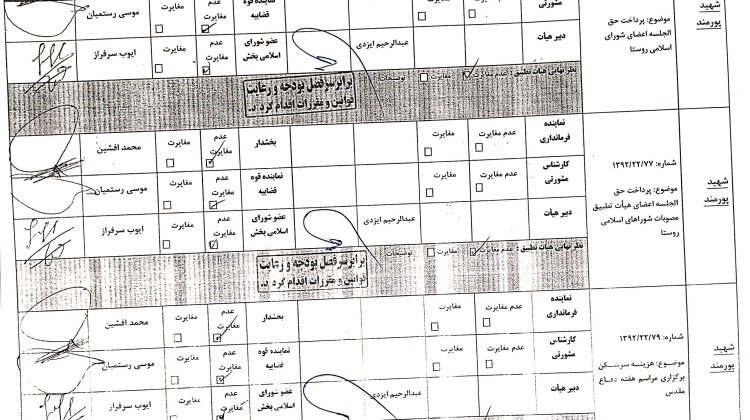 شهید
پورمند
موضوع: پرداخت حق
الجلسه اعضای شورای
اسلامی روستا
مشورتی
عدم مغایرت
مغایرت
نماینده قوه
قضاییه
عدم
مغایرت
مغایرت
موسی رستمیان
دبیر هیأت
عبدالرحیم ایزدی
عضو شورای
اسلامی بخش
عدم
مغایرت
مغایرت
ایوب سرفراز
نظر نهایی هیأت تطبیق: عدم مغایرت مغایرت توضیحات:
برابر سرفصل بودجه و رعایت
قوانین و مقررات اقدام گردد.
شهید
پورمند
شماره: ۱۳۹۲/۲۲/۷۷
موضوع: پرداخت حق
الجلسه اعضای هیأت تطبیق
مصوبات شوراهای اسلامی
روستا
نماینده
فرمانداری
عدم مغایرت
مغایرت
بخشدار
عدم
مغایرت
مغایرت
محمد افشین
کارشناس
مشورتی
عدم مغایرت
مغایرت
نماینده قوه
قضاییه
عدم
مغایرت
مغایرت
موسی رستمیان
دبیر هیأت
عبدالرحیم ایزدی
عضو شورای
اسلامی بخش
عدم
مغایرت
مغایرت
ایوب سرفراز
نظر نهایی هیأت تطبیق: عدم مغایرت مغایرت توضیحات:
برابر سرفصل بودجه و رعایت
قوانین و مقررات اقدام گردد.
شهید
پورمند
شماره: ۱۳۹۲/۲۲/۷۹
موضوع: هزینه سرسکن
برگزاری مراسم هفته دفاع
مقدس
نماینده
فرمانداری
عدم مغایرت
مغایرت
بخشدار
عدم
مغایرت
مغایرت
محمد افشین
کارشناس
مشورتی
عدم مغایرت
مغایرت
نماینده قوه
قضاییه
عدم
مغایرت
مغایرت
موسی رستمیان
دبیر هیأت
عبدالرحیم ایزدی
عضو شورای
اسلامی بخش
عدم
مغایرت
مغایرت
ایوب سرفراز